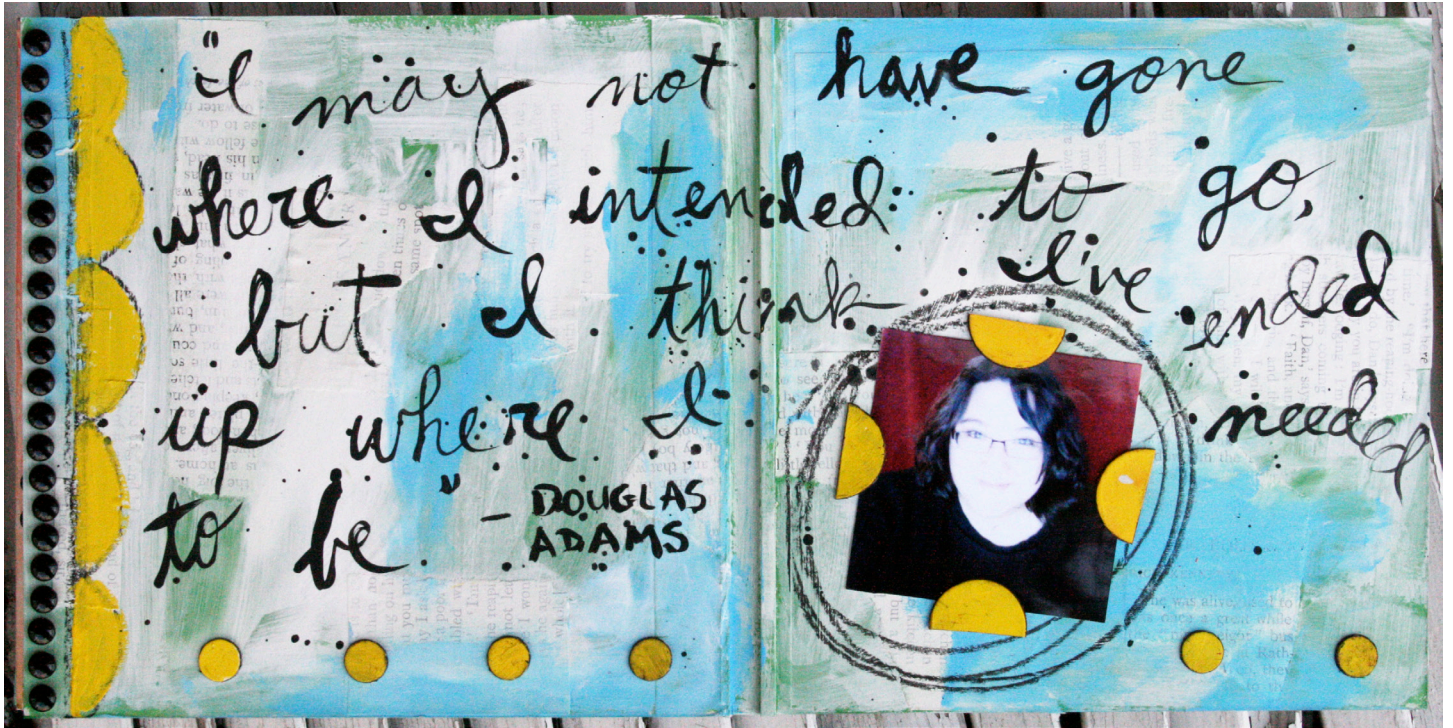 "I may not have gone
where I intended to go,
but I think I've ended
up where I needed
to be"
- DOUGLAS
ADAMS